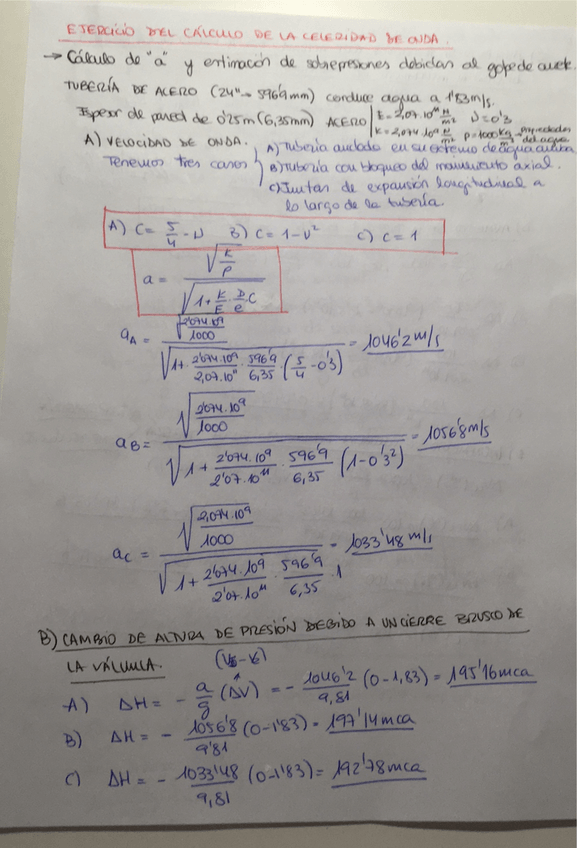 EJERCICIO DEL CÁLCULO DE LA CELERIDAD DE ONDA.
→ Cálculo de "a" y estimación de sobrepresiones debidas al golpe de ariete.
TUBERÍA DE ACERO (24"→ 596'9mm) conduce agua a 1'83 m/s.
Espesor de pared de 0'25m (6,35mm) ACERO | E = 2,07·10¹¹ N/m² υ = 0'3
K = 2,074·10⁹ N/m² ρ = 1000 kg/m³ → propiedades del agua
A) VELOCIDAD DE ONDA.
Tenemos tres casos
A) Tubería anclada en su extremo de agua arriba
B) Tubería con bloqueo del movimiento axial.
C) Juntas de expansión longitudinal a
lo largo de la tubería.
A) C = 5/4 - υ B) C = 1 - υ² C) C = 1
a = √(K/ρ) / √(1 + K/E · D/e · C)
a_A = √(2'074·10⁹/1000) / √(1 + 2'074·10⁹/2,07·10¹¹ · 596'9/6,35 · (5/4 - 0'3)) = 1046'2 m/s
a_B = √(2'074·10⁹/1000) / √(1 + 2'074·10⁹/2'07·10¹¹ · 596'9/6,35 (1 - 0'3²)) = 1056'8 m/s
a_C = √(2,074·10⁹/1000) / √(1 + 2'074·10⁹/2'07·10¹¹ · 596'9/6,35 · 1) = 1033'48 m/s
B) CAMBIO DE ALTURA DE PRESIÓN DEBIDO A UN CIERRE BRUSCO DE
LA VÁLVULA.
A) ΔH = - a/g (ΔV) = - 1046'2/9,81 (0 - 1,83) = 195'16 mca
B) ΔH = - 1056'8/9'81 (0 - 1'83) = 197'14 mca
C) ΔH = - 1033'48/9,81 (0 - 1'83) = 192'78 mca